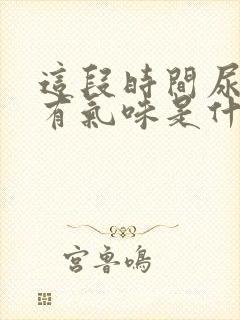 這段時間尿
有氣味是什
宮魯鳴